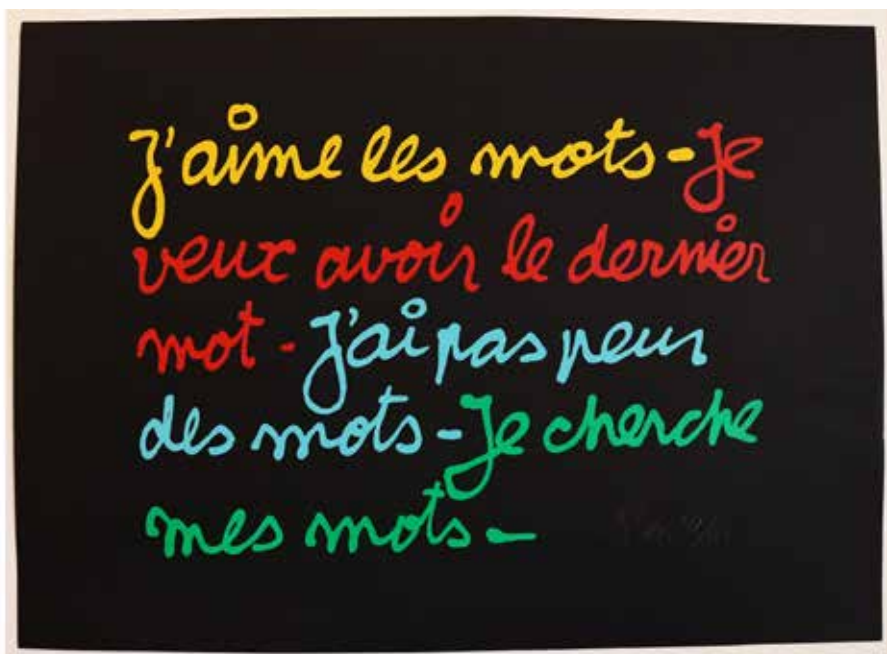 J'aime les mots - Je
veux avoir le dernier
mot - J'ai pas peur
des mots - Je cherche
mes mots -